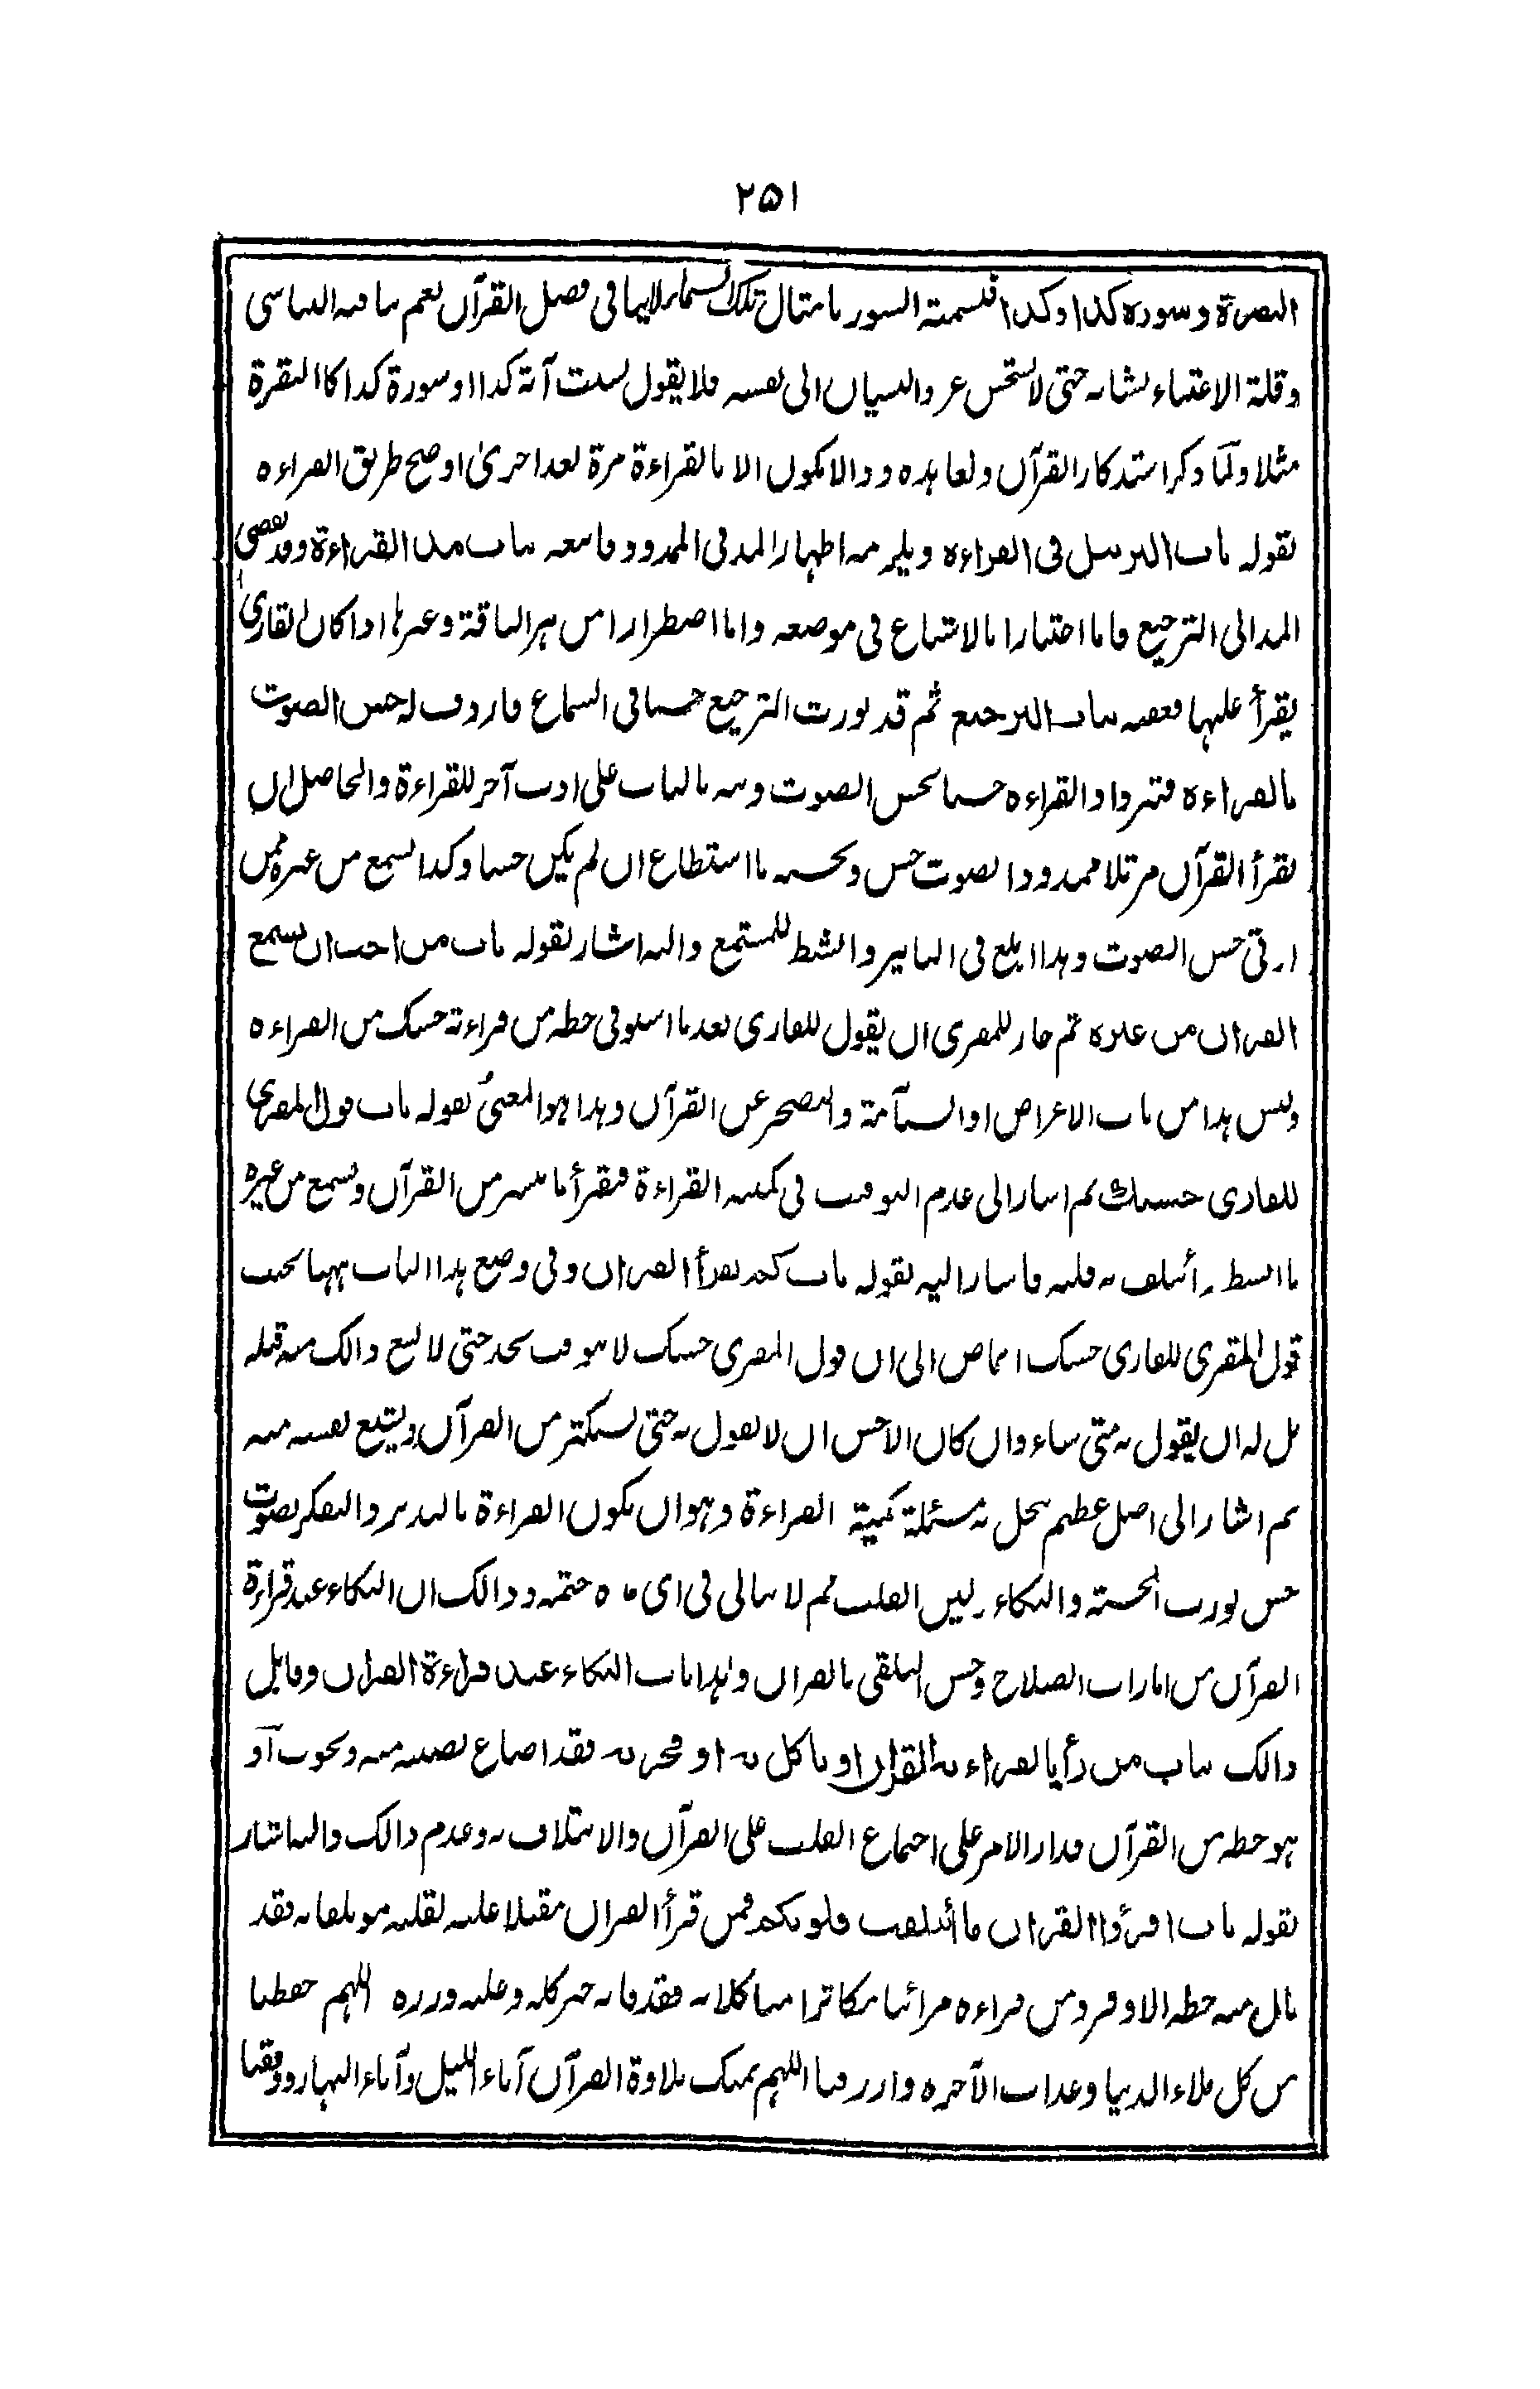 ۲۵۱
البقرة وسورة كذا وكذا فتسمية السور بامثال تلك لاينافي فضل القرآن نعم ينافيه التناسي
وقلة الاعتناء بشانه حتى لا يستحسن عزو النسيان الى نفسه فلا يقول نسيت آية كذا او سورة كذا كالبقرة
مثلا ولما ذكر استذكار القرآن وتعاهده وذا لا يكون الا بالقراءة مرة بعد اخرى اوضح طريق القراءة
بقوله باب الترسل في القراءة ويلزمه اظهار المد في الممدود فاتبعه بباب مد القراءة وقد يفضي
المد الى الترجيع فاما اختيارا بالاشباع في موضعه واما اضطرارا من هز الناقة وغيرها اذا كان القاري
يقرأ عليها فعقبه بباب الترجيع ثم قد يورث الترجيع حسنا في السماع فاردف له حسن الصوت
بالقراءة فتزداد القراءة حسنا بحسن الصوت ونبه بالباب على ادب آخر للقراءة والحاصل ان
يقرأ القرآن مرتلا ممدودا بصوت حسن ويحسنه ما استطاع ان لم يكن حسنا وكذا يسمع من غيره ممن
اوتي حسن الصوت وهذا ابلغ في التاثير وانشط للمستمع واليه اشار بقوله باب من احب ان يسمع
القران من غيره ثم جاز للمقري ان يقول للقاري بعد ما استوفى حظه من قراءته حسبك من القراءة
وليس هذا من باب الاعراض او السآمة والتضجر عن القرآن وهذا هو المعنى بقوله باب قول المقري
للقاري حسبك ثم اشار الى عدم التوقيت في كمية القراءة فيقرأ ما تيسر من القرآن ويسمع من غيره
ما انبسط وأتلف به قلبه فاشار اليه بقوله باب كم يقرأ القران وفي وضع هذا الباب ههنا تحت
قول المقري للقاري حسبك ايماض الى ان قول المقري حسبك لا يوقت بحد حتى لا يسع ذالك منه قبله
بل له ان يقول به متى شاء وان كان الاحسن ان لا يقول به حتى يستكثر من القرآن ويشبع نفسه منه
ثم اشار الى اصل عظيم تنحل به مسئلة كمية القراءة وهو ان يكون القراءة بالتدبر والتفكر بصوت
حسن يورث الخشية والبكاء ولين القلب ثم لا يبالي في اي مدة ختمه وذالك ان البكاء عند قراءة
القرآن من امارات الصلاح وحسن التلقي بالقران وهذا باب البكاء عند قراءة القران وقابل
ذالك بباب من رأيا بقراءة القران او تاكل به او فجر به فقد اضاع نصيبه منه
هو حظه من القرآن فدار الامر على اجتماع القلب على القرآن والائتلاف به وعدم ذالك واليه اشار
بقوله باب اقرؤا القران ما أتلفت قلوبكم فمن قرأ القران مقبلا عليه بقلبه مؤتلفا به فقد
نال منه حظه الاوفر ومن قراءه مرائيا مكاثرا متاكلا به فقد فاته خيره كله وعليه وزره اللهم احفظنا
من كل بلاء الدنيا وعذاب الآخرة وارزقنا اللهم بمنك تلاوة القرآن آناء الليل وآناء النهار ووفقنا